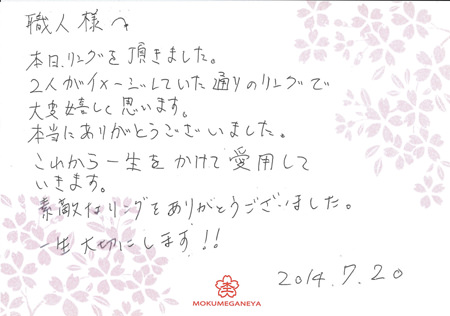 職人様へ
本日、リングを頂きました。
2人がイメージしていた通りのリングで
大変嬉しく思います。
本当にありがとうございました。
これから一生をかけて愛用して
いきます。
素敵なリングをありがとうございました。
一生大切にします!!
2014.7.20
MOKUMEGANEYA